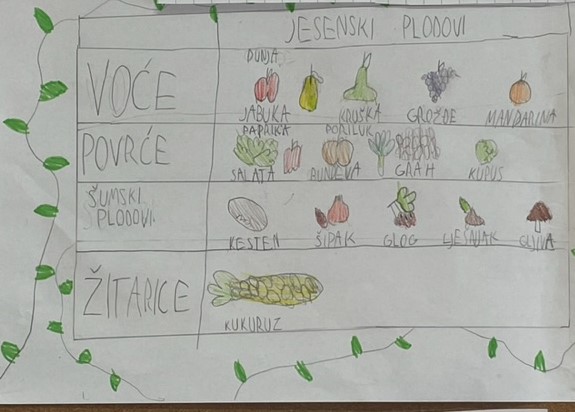 JESENSKI PLODOVI
VOĆE
DUNJA
JABUKA KRUŠKA GROŽĐE MANDARINA
POVRĆE
PAPRIKA PORILUK
SALATA BUNDEVA GRAH KUPUS
ŠUMSKI
PLODOVI
KESTEN ŠIPAK GLOG LJEŠNJAK GLJIVA
ŽITARICE
KUKURUZ